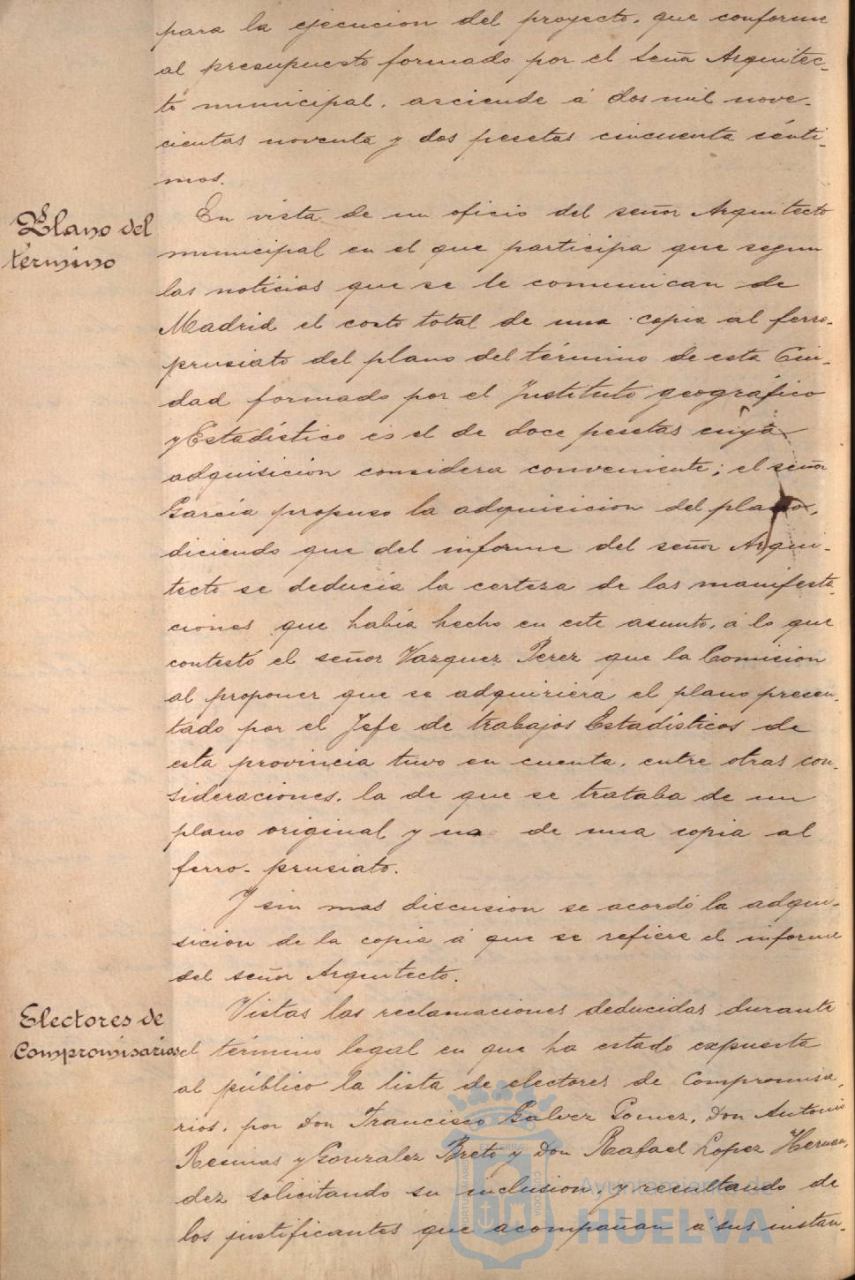 para la ejecucion del proyecto, que conforme
al presupuesto formado por el Señor Arquitec-
to municipal, asciende á dos mil nove-
cientas noventa y dos pesetas cincuenta cénti-
mos.
Plano del
término
En vista de un oficio del señor Arquitecto
municipal en el que participa que segun
las noticias que se le comunican de
Madrid el costo total de una copia al ferro-
prusiato del plano del término de esta Ciu-
dad formado por el Instituto geográfico
y Estadístico es el de doce pesetas cuya
adquisición considera conveniente; el señor
García propuso la adquisicion del plano,
diciendo que del informe del señor Arqui-
tecto se deducia la certeza de las manifesta-
ciones que había hecho en este asunto, á lo que
contestó el señor Vazquez Perez que la Comision
al proponer que se adquiriera el plano presen-
tado por el Jefe de trabajos Estadísticos de
esta provincia tuvo en cuenta, entre otras con-
sideraciones, la de que se trataba de un
plano original y no de una copia al
ferro-prusiato.
Y sin mas discusion se acordó la adqui-
sicion de la copia á que se refiere el informe
del señor Arquitecto.
Electores de
Compromisarios
Vistas las reclamaciones deducidas durante
el término legal en que ha estado expuesta
al público la lista de electores de Compromisa-
rios, por Don Francisco Galvez Gomez, Don Antonio
y Gonzalez y Don Rafael Lopez Hernan-
dez solicitando su inclusion, y resultando de
los justificantes que acompañan a sus instan-
Ayuntamiento de
HUELVA